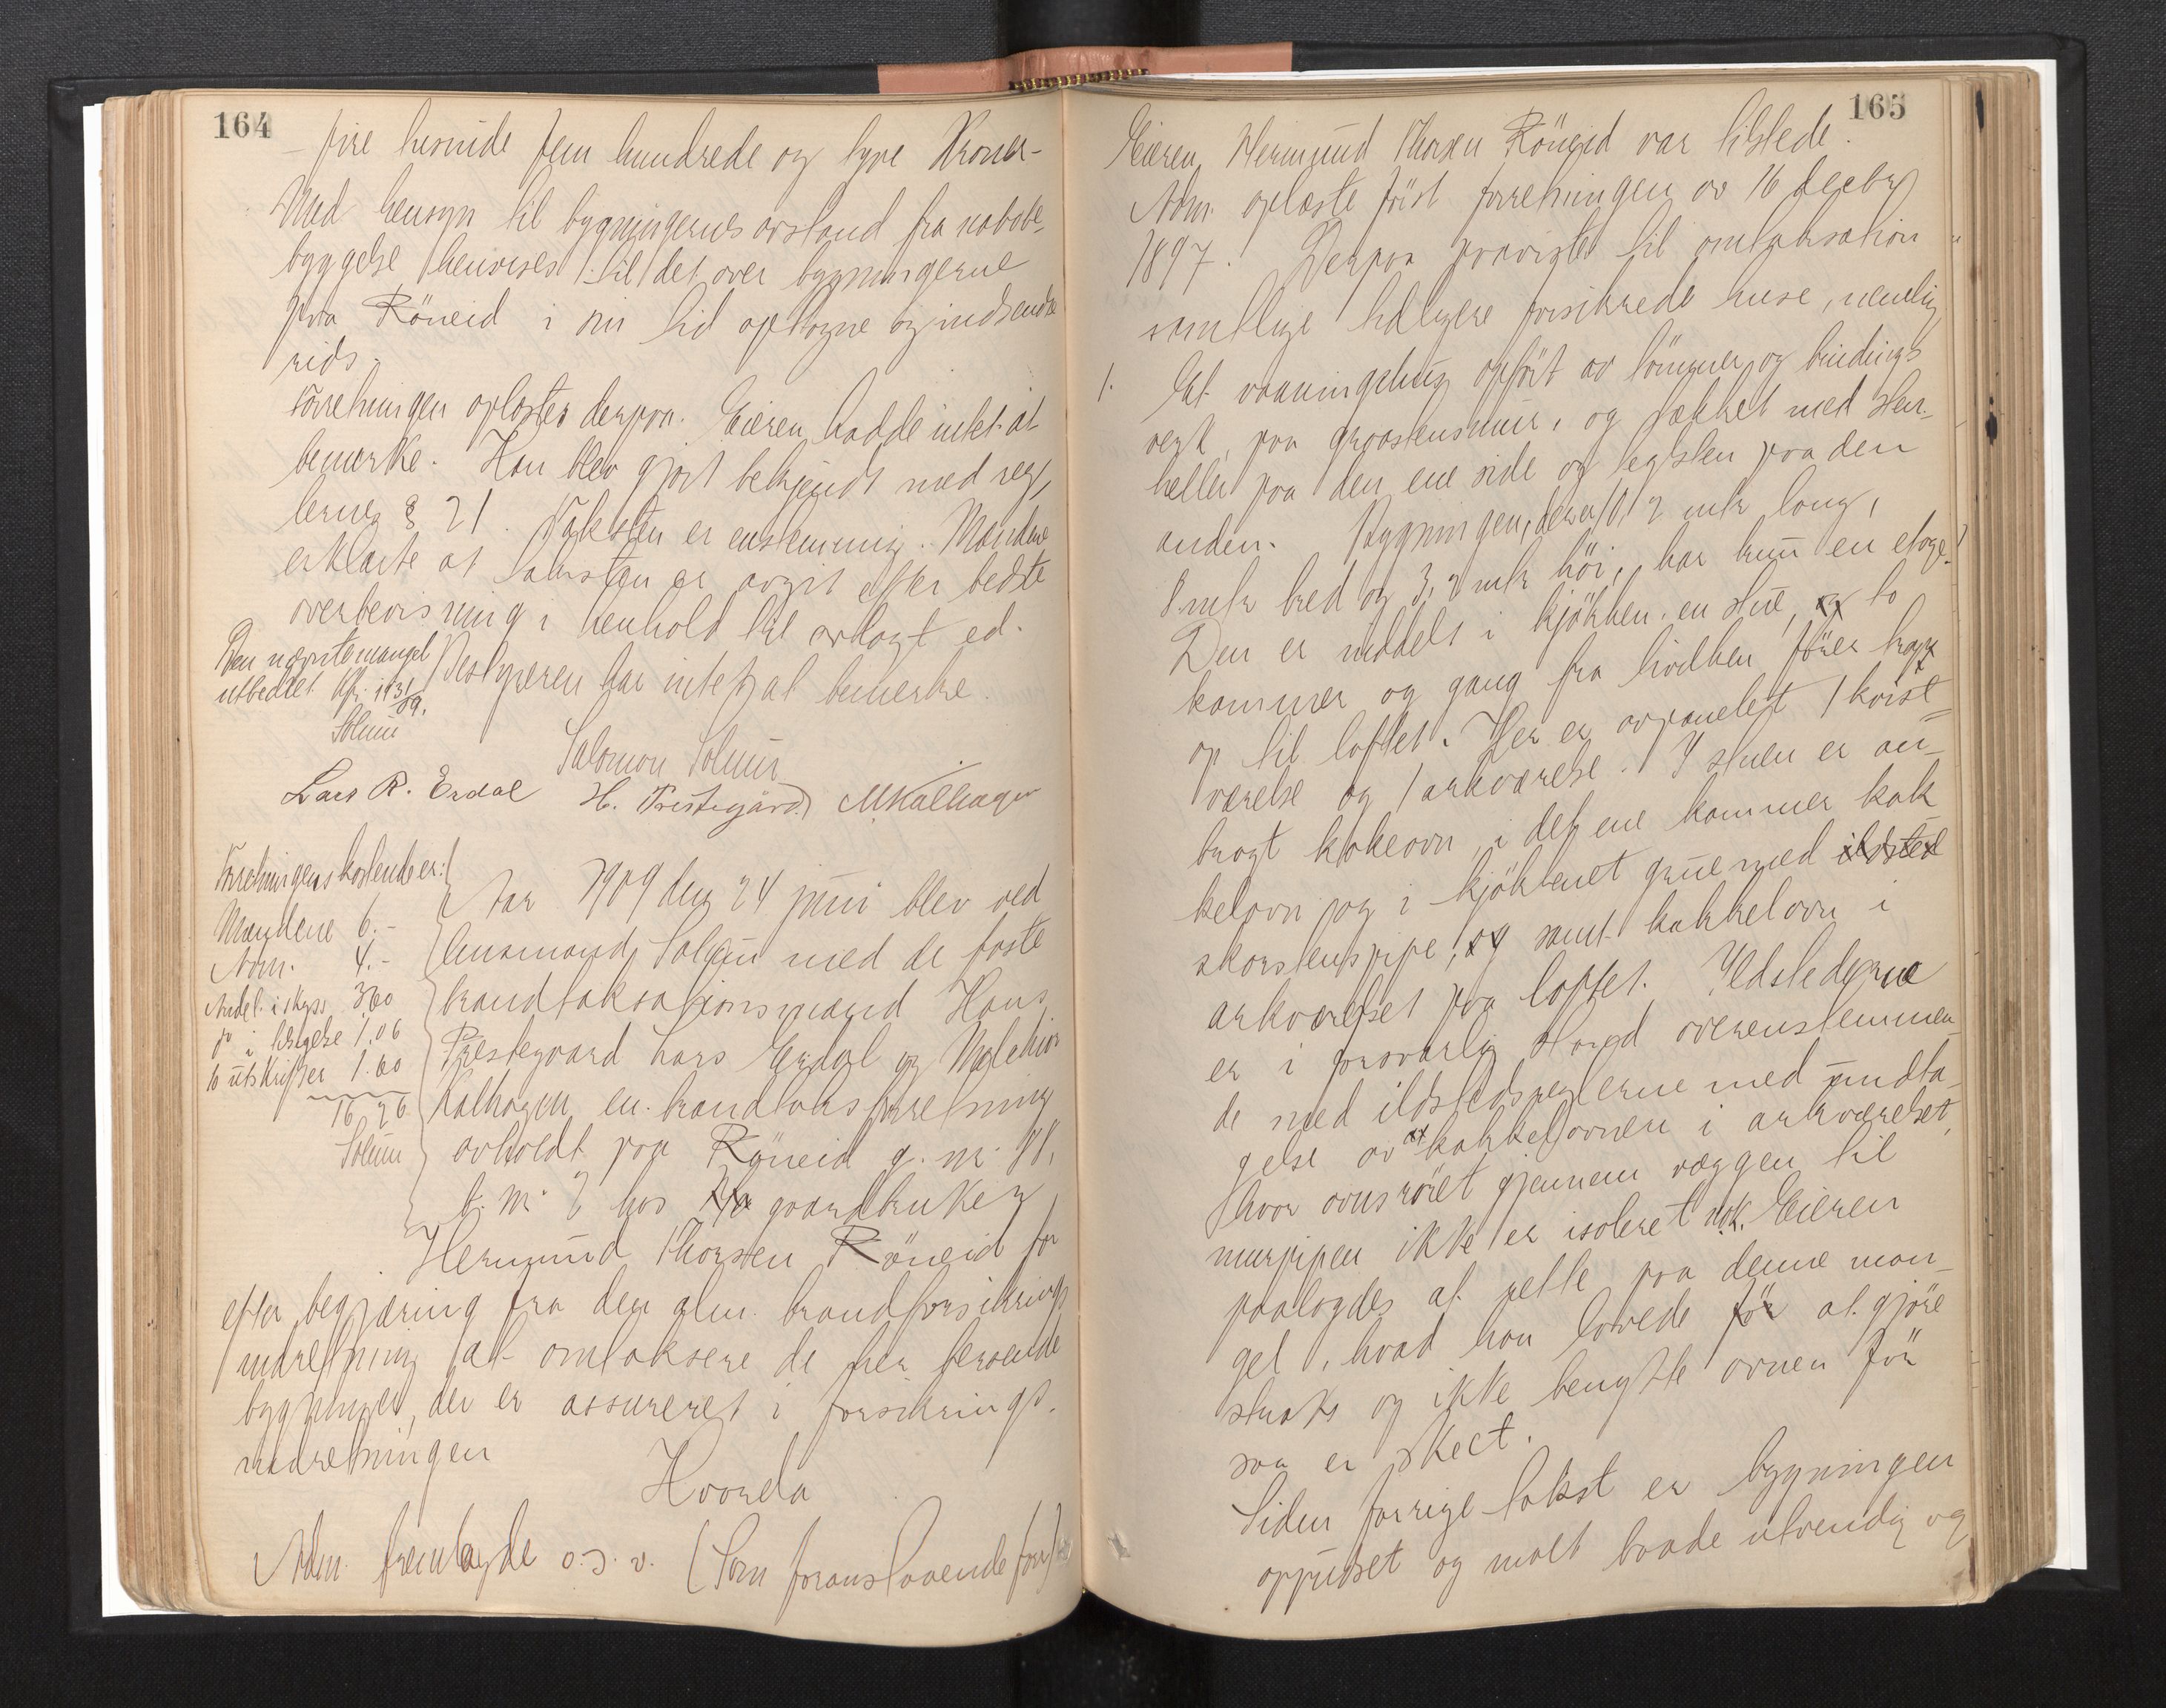 164
fire tusinde fem hundrede og tyve Kroner-
Med hensyn til bygningernes avstand fra nabobe-
byggelse henvises til det over bygningerne
paa Röneid i sin tid optagne og indsendte
rids.
Forretningen oplæstes derpaa. Eieren hadde intet at
bemerke. Han blev gjort bekjendt med reg-
lernes § 21. Taksten er enstemmig. Mændene
erklærte at taksten er avgit efter bedste
overbevisning i henhold til avlagt ed.
Den nævnte mangel
utbedret. Kfr. 1931/09.
Solum
Bestyreren har intet at bemerke.
Salomon Solum
Lars R. Erdal H. Prestegård M Kalhagen
Forretningens kostende er:
Mændene 6.-
Adm. 4.-
Andel i skyss 3.60
do i 1.06
to utskrifter 1.60
16 26
Solum
Aar 1909 den 24 juni blev ved
lensmand Solum med de faste
brandtaksationsmænd Hans
Prestegaard Lars Erdal og Melchior
Kalhagen en brandtakstforretning
avholdt paa Röneid g. nr. 88,
b. nr. 2 hos gaardbruker
Hermund Thorsen Röneid for
efter begjæring fra den alm. brandforsikrings
indretning at omtaksere de her beroende
bygninger, der er assureret i forsikrings-
indretningen
Hvorda
Adm. fremlagde o. s. v. (Som foranstaaende forr)
165
Eieren Hermund Thorsen Röneid var tilstede.
Adm. oplæste först forretningen av 16 decbr
1897. Derpaa paavistes til omtaksation
samtlige tidligere forsikrede huse, nemlig
1. Et vaaningshus opfört av tömmer og bindings
verk, paa graastensmur, og tækket med sten-
heller paa den ene side og tegsten paa den
anden. Bygningen, der er 10,2 mtr lang,
8 mtr bred og 3,2 mtr höi, har kun en etage.
Den er inddelt i kjökken, en stue, og to
kammer og gang fra hvilken förer trap
op til loftet. Her er avpanelet 1 kvist-
værelse og 1 arkværelse. I stuen er an-
bragt kokeovn, i det ene kammer kak-
kelovn og i kjökkenet grue med ildsted
skorstenspipe, og samt kakkelovn i
arkværelset paa loftet. Ildstederne
er i forsvarlig stand overenstemmen-
de med ildstedsreglerne med undta-
gelse av at kakkelovnen i arkværelset,
hvor ovnsröret gjennem væggen til
murpipen ikke er isoleret nok. Eieren
paalagdes at rette paa denne man-
gel, hvad han lovede för at gjöre
straks og ikke benytte ovnen för
saa er skeet.
Siden forrige takst er bygningen
oppudset og malt baade utvendig og